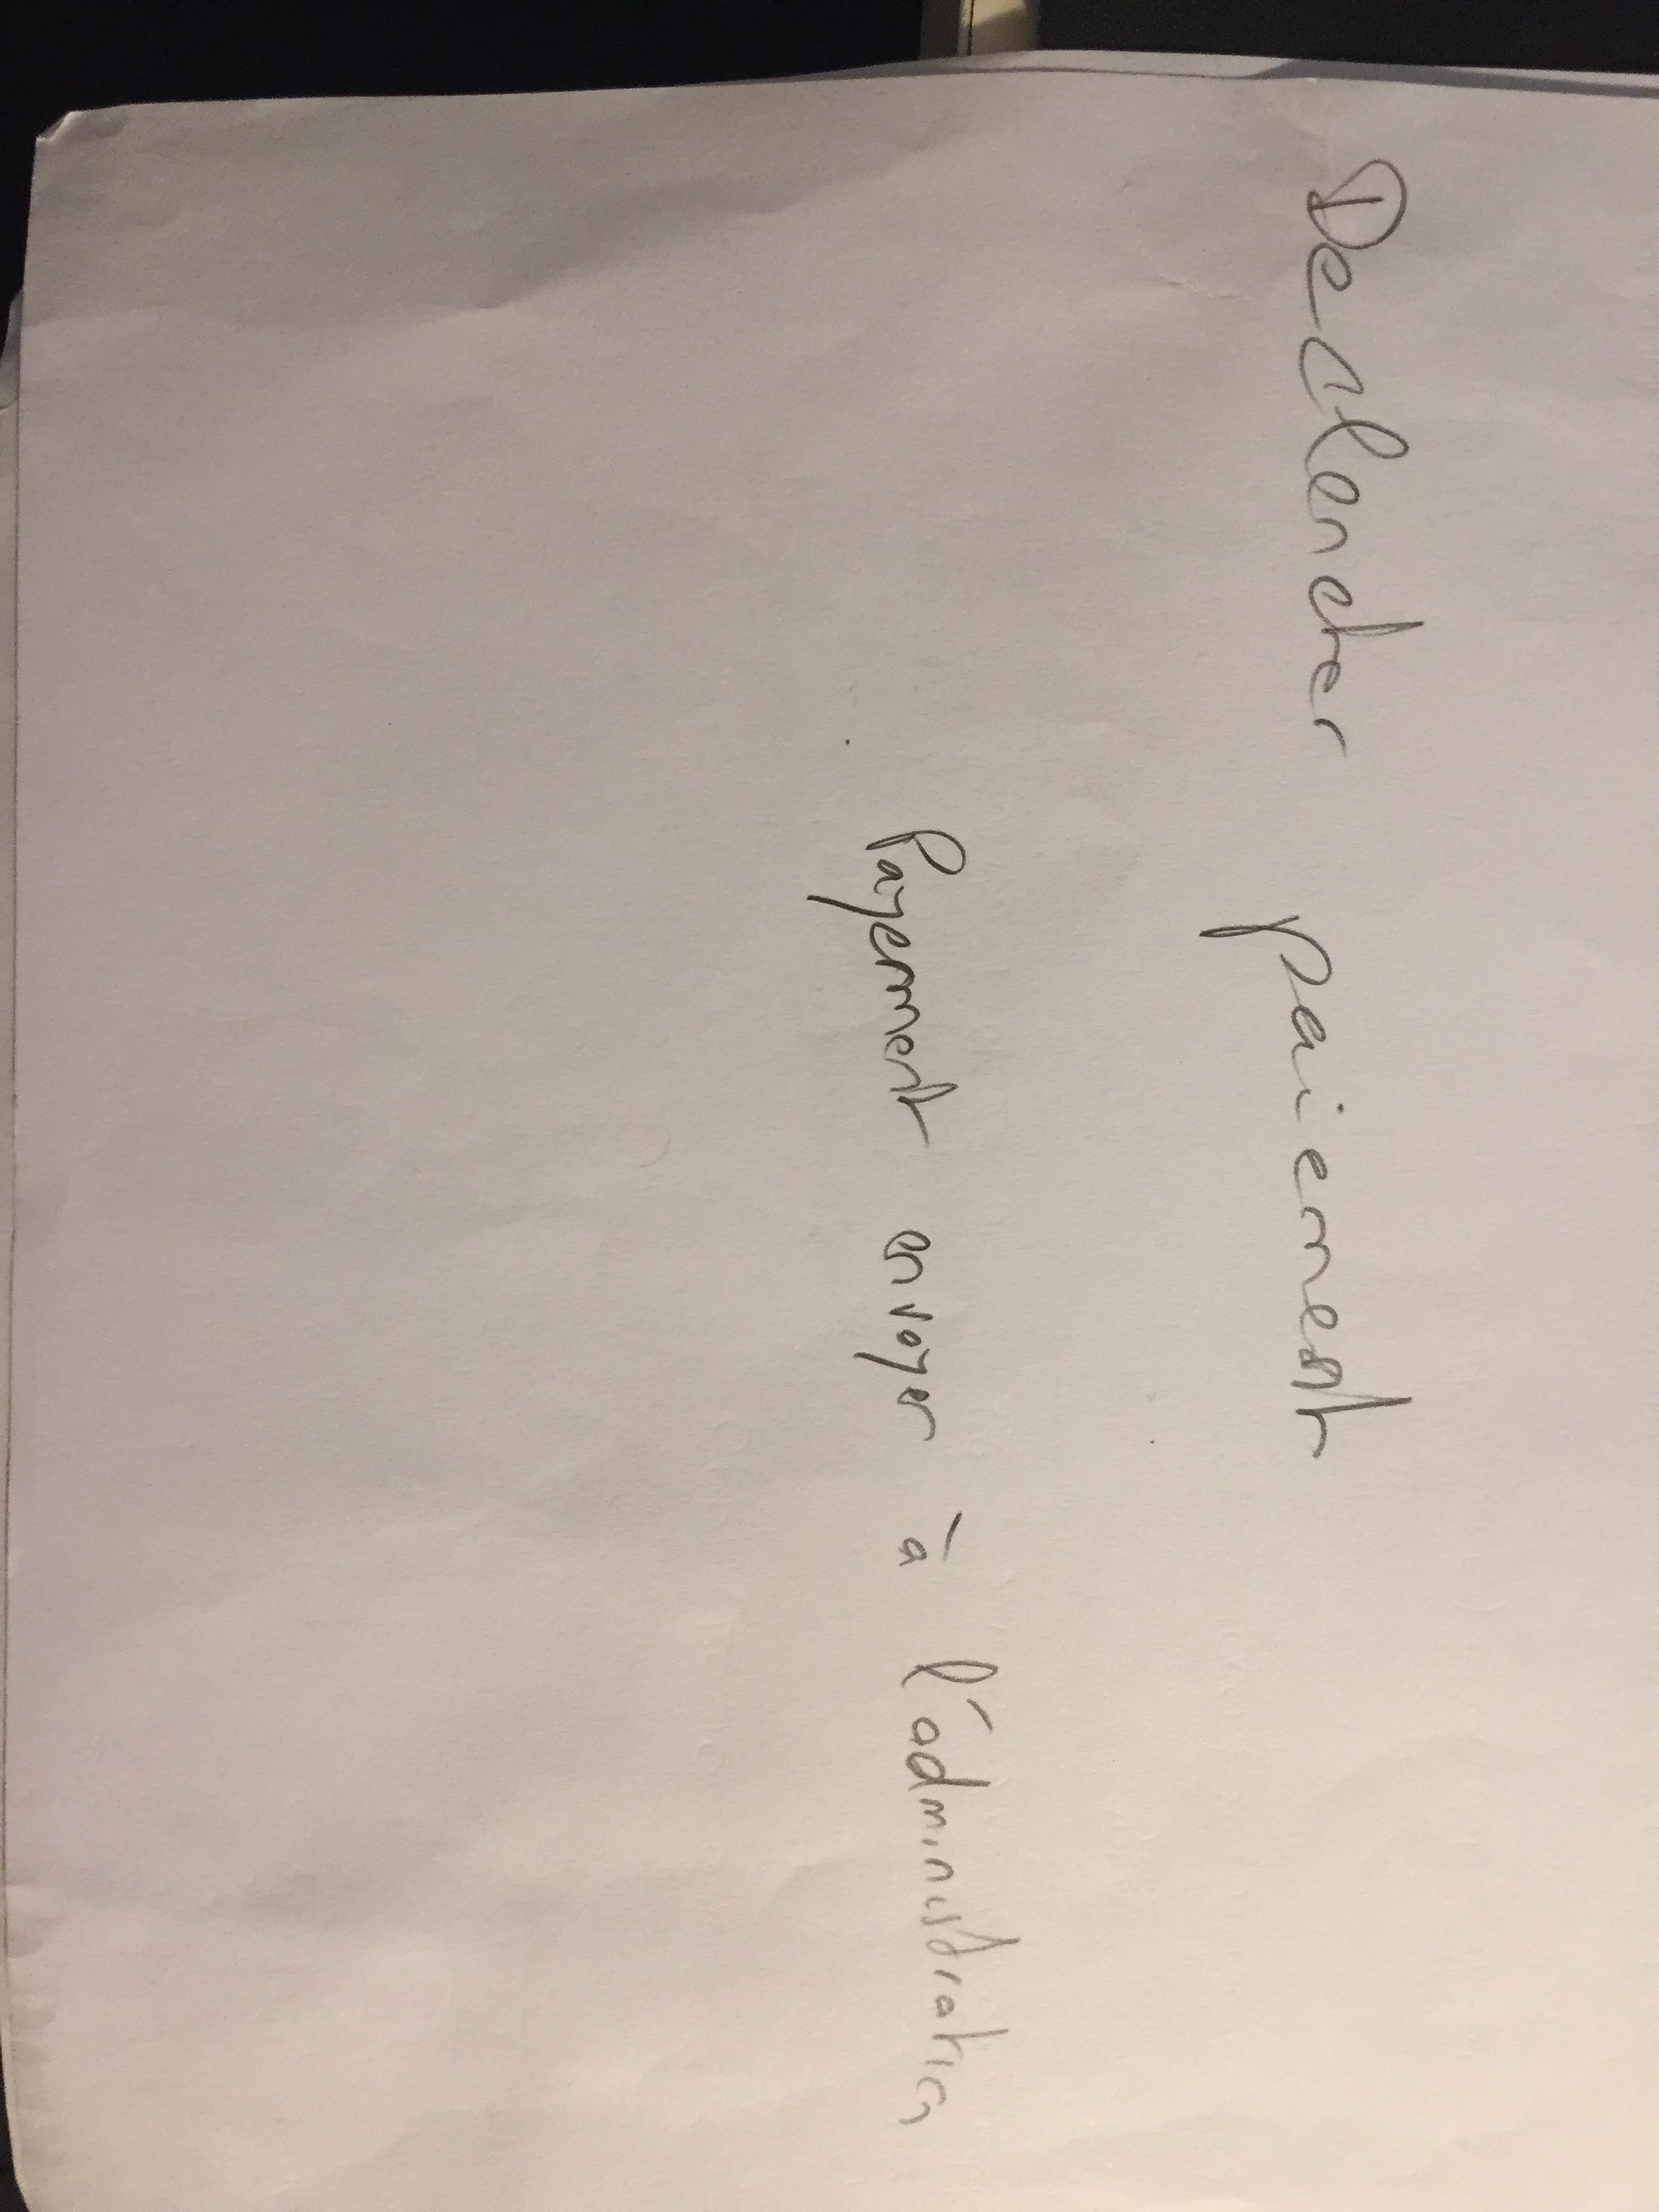 Declencher paiement
Payement envoyer à l'administration